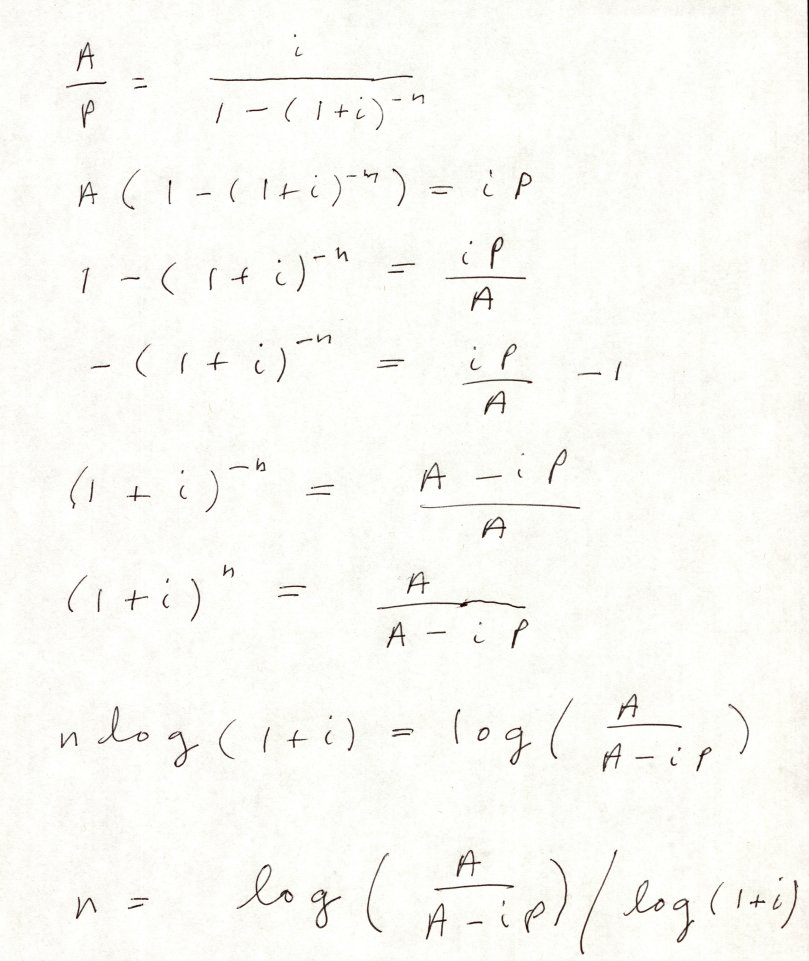 A/P = i/(1-(1+i)^-n)
A(1-(1+i)^-n) = iP
1-(1+i)^-n = iP/A
-(1+i)^-n = iP/A -1
(1+i)^-n = (A-iP)/A
(1+i)^n = A/(A-iP)
n log(1+i) = log(A/(A-iP))
n = log(A/(A-iP))/log(1+i)